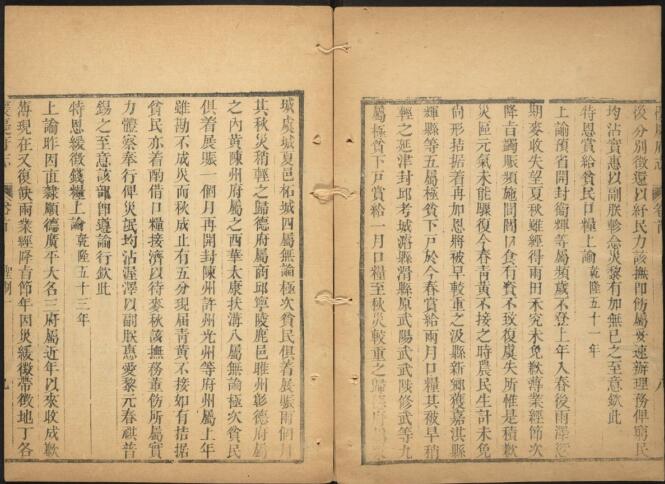 後分別徵還以紓民力該撫卽飭屬妥速辦理務俾窮民
均沾實惠以副朕軫念災黎有加無已之至意欽此
特恩賞給貧民口糧上諭乾隆五十一年
上諭豫省開封衞輝等屬頻歲不登上年入春後雨澤
期麥收失望夏秋雖經得雨田禾究未免歉薄業經節次
降旨蠲賑頻施閭閻口食有資不致復虞失所惟是積歉
災區元氣未能驟復今春青黃不接之時農民生計未免
尙形拮据着再加恩將被旱較重之汲縣新鄉獲嘉淇縣
輝縣等五屬極貧下戶於今春賞給兩月口糧其被旱稍
輕之延津封邱考城濬縣滑縣原武陽武武陟修武等九
屬極貧下戶賞給一月口糧至秋災較重之歸德府
城虞城夏邑柘城四屬無論極次貧民俱着展賑兩個月
其秋災稍輕之歸德府屬商邱寧陵鹿邑睢州彰德府屬
之內黃陳州府屬之西華太康扶溝八屬無論極次貧民
俱着展賑一個月再開封陳州許州光州等府州屬上年
雖勘不成災而秋成止有五分現屆青黃不接如有拮据
貧民亦着酌借口糧接濟以待麥秋該撫務董飭所屬實
力體察奉行俾災民均沾渥澤以副朕惠愛黎元春祺普
錫之至意該部卽遵諭行欽此
特恩緩徵錢糧上諭乾隆五十三年
上諭昨因直隸順德廣平大名三府屬近年以來收成歉
薄現在又復缺雨業經降旨節年因災緩徵帶徵地丁各